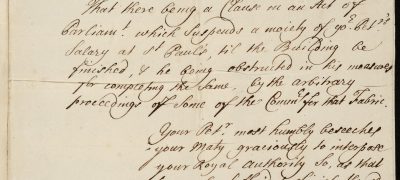 That there being a Clause in an Act of
Parliamt. which Suspends a moiety of yor. Petrs
Salary at St Pauls, til the Building be
finished, & he being obstructed in his measures
for completing the Same, by the arbitrary
proceedings of Some of the Comrs. for that Fabric.
Your Petr. most humbly beseeches
your Maty. graciously to interpose
your Royal Authority So, as that